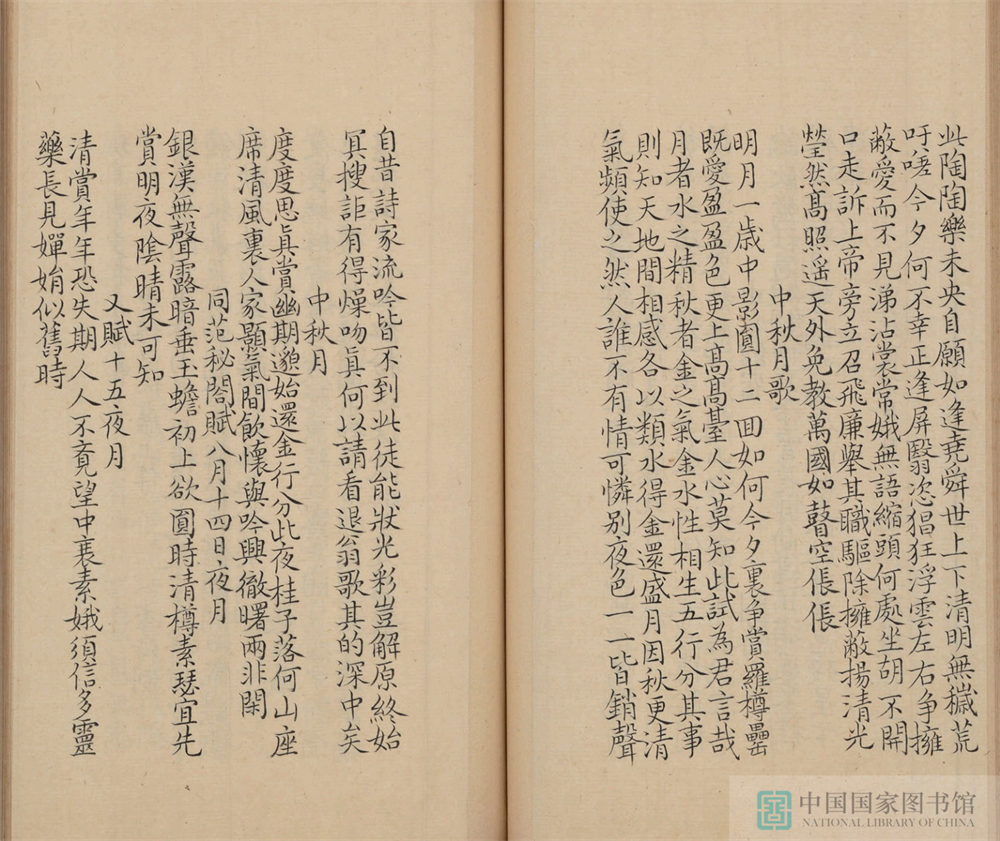 此陶陶樂未央自願如逢堯舜世上下清明無穢荒
吁嗟今夕何不幸正逢屏翳恣猖狂浮雲左右争擁
蔽愛而不見涕沾裳常娥無語縮頭何處坐胡不開
口走訴上帝旁立召飛廉舉其職驅除擁蔽揚清光
瑩然髙照遥天外免教萬國如瞽空倀倀
中秋月歌
明月一歳中影圎十二囬如何今夕裏争賞羅樽罍
既愛盈盈色更上髙髙䑓人心莫知此試為君言哉
月者水之精秋者金之氣金水性相生五行分其事
則知天地間相感各以類水得金還盛月因秋更清
氣頻使之然人誰不有情可憐别夜色一一皆銷聲
自昔詩家流吟皆不到此徒能狀光彩豈解原終始
冥搜詎有得燥吻眞何以請看退翁歌其的深中矣
中秋月
度度思眞賞幽期邈始還金行分此夜桂子落何山座
席清風裏人家顥氣間飲懷與吟興徹曙兩非閑
同范秘閣賦八月十四日夜月
銀漢無聲露暗垂玉蟾初上欲圎時清樽素瑟宜先
賞明夜陰晴未可知
又賦十五夜月
清賞年年恐失期人人不竟望中衰素娥須信多靈
藥長見嬋娟似舊時
中国国家图书馆
NATIONAL LIBRARY OF CHINA